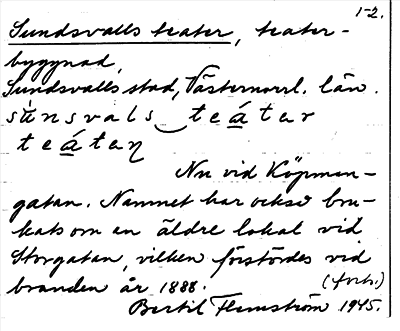 1-2.
Sundsvalls teater, teater-
byggnad,
Sundsvalls stad, Västernorrl. län.
sùnsvals teátar
teátaɳ
Nu vid Köpman-
gatan. Namnet har också bru-
kats om en äldre lokal vid
Storgatan, vilken förstördes vid
branden år 1888. (forts.)
Bertil Flemström 1945.